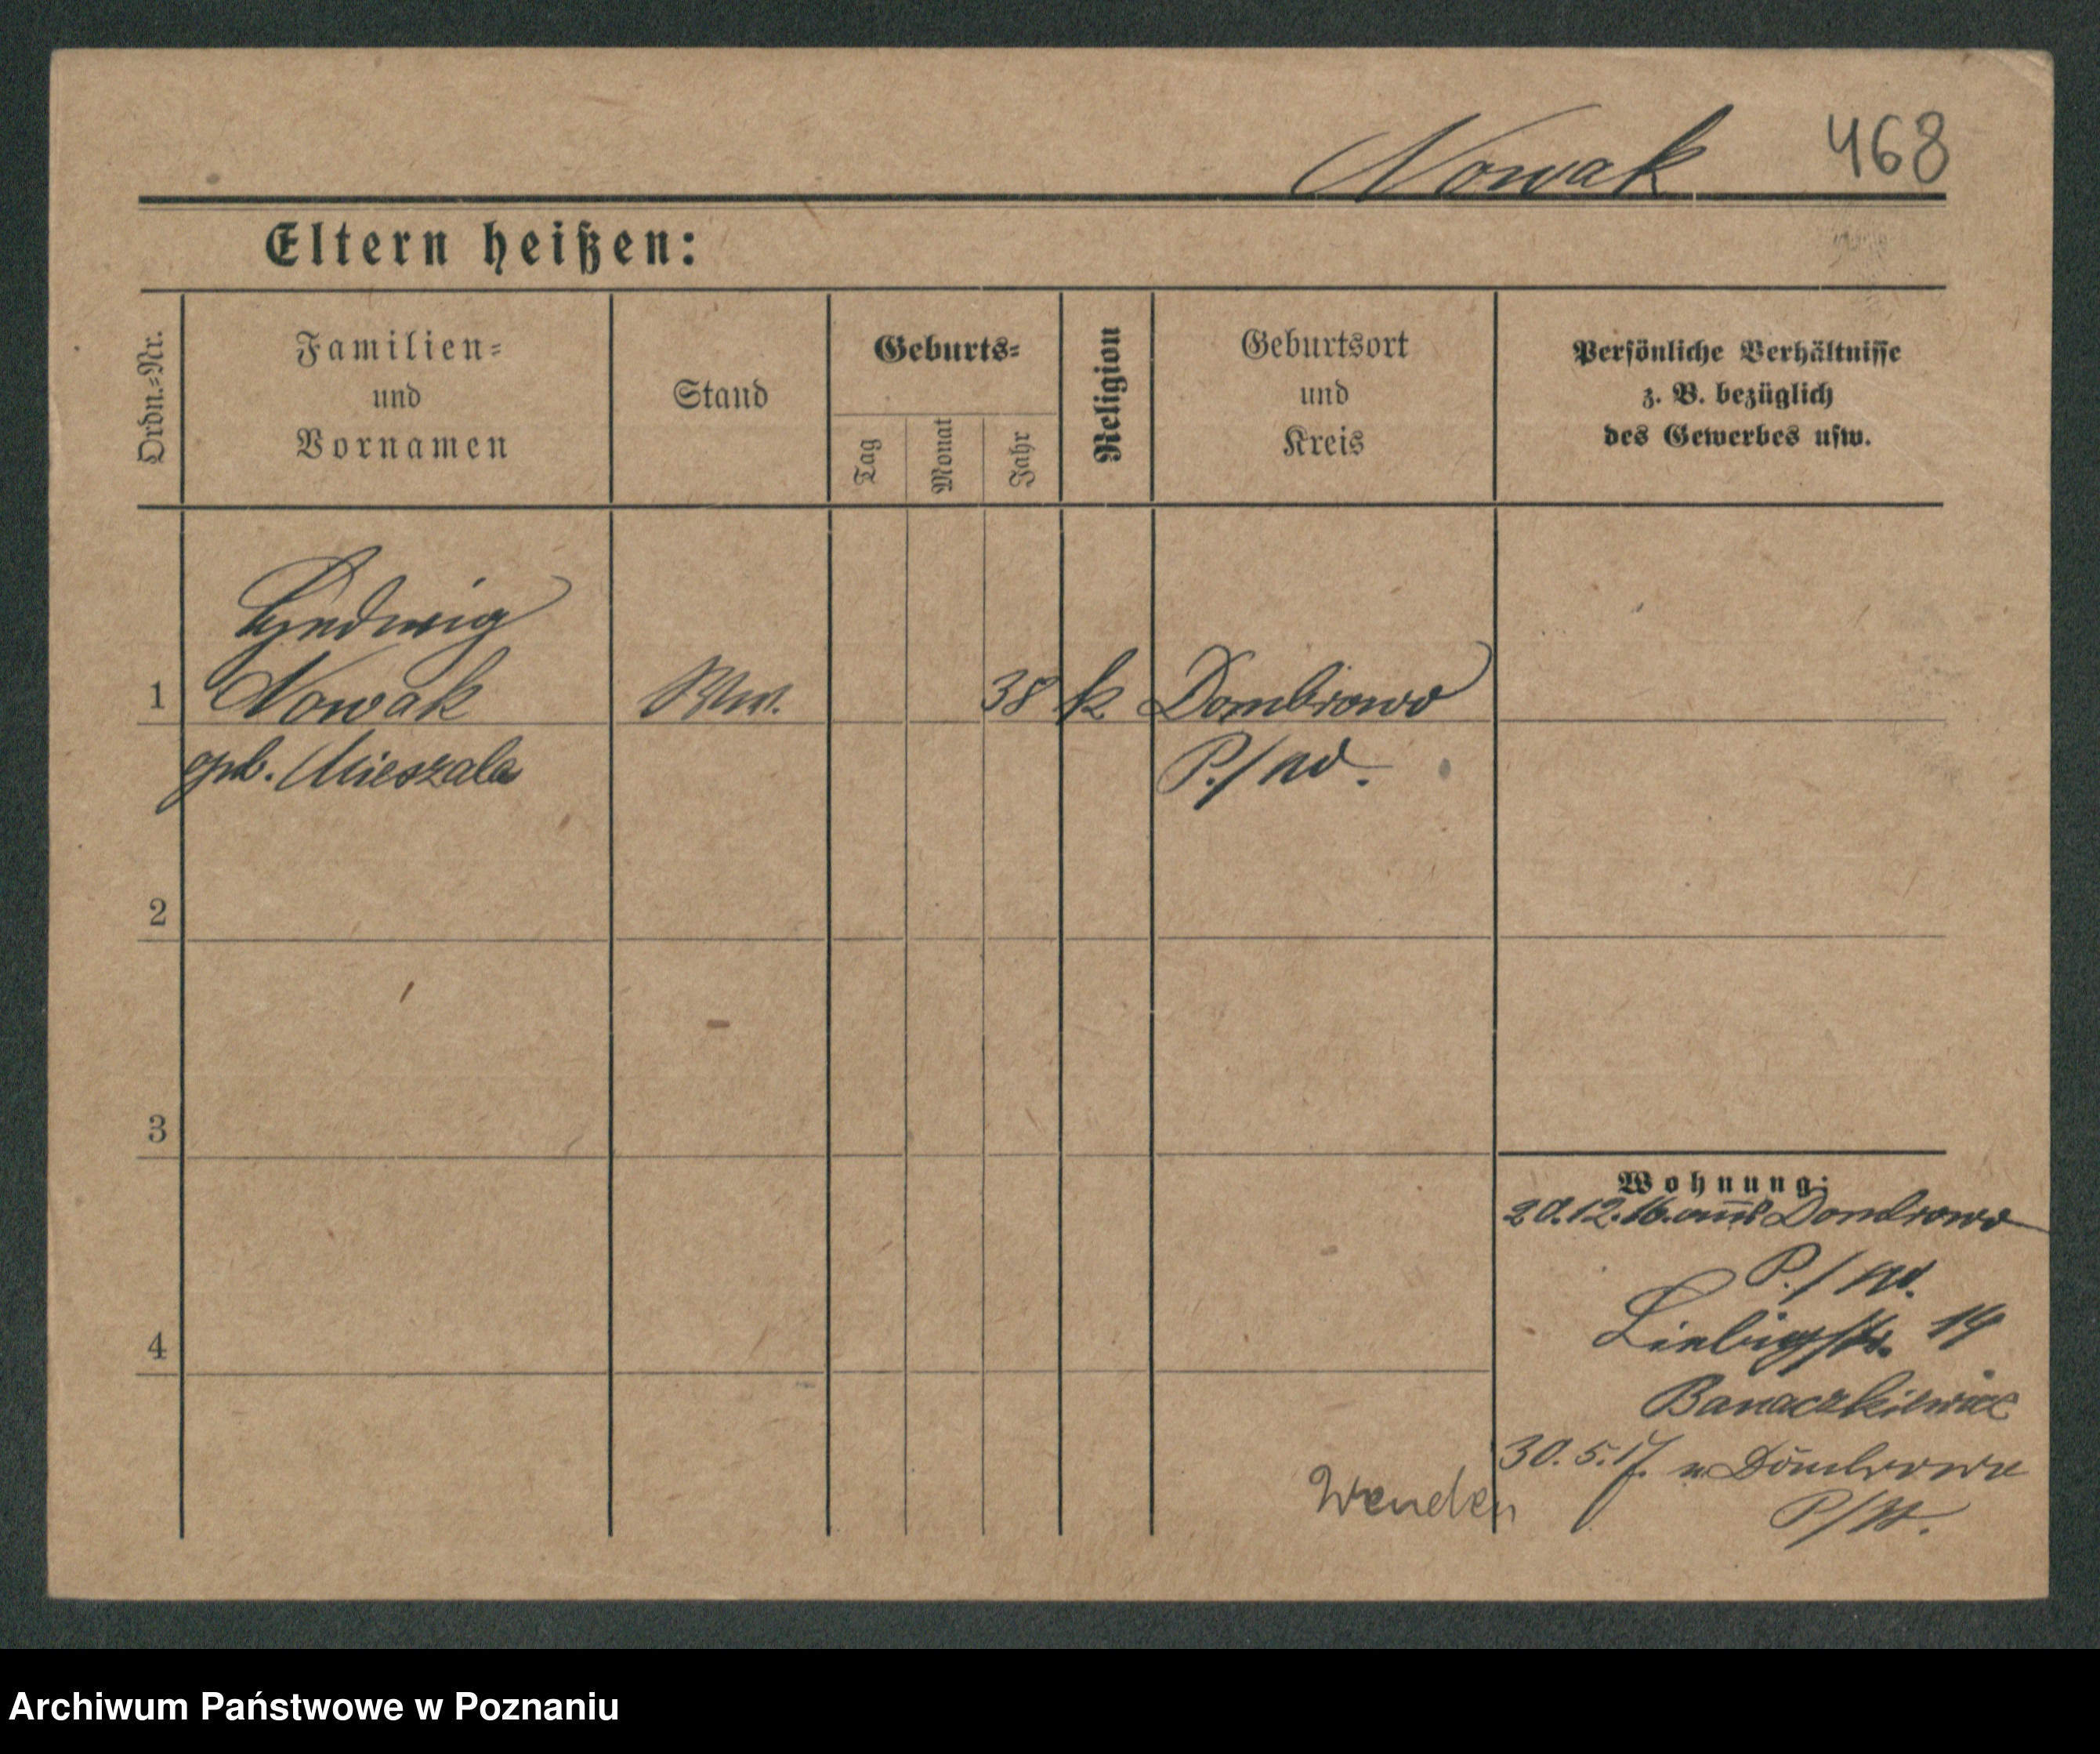 Nowak 468
Eltern heißen:
Ordn.=Nr.
Familien=
und
Vornamen
Stand
Geburts=
Tag
Monat
Jahr
Religion
Geburtsort
und
Kreis
Persönliche Verhältnisse
z. B. bezüglich
des Gewerbes usw.
Hedwig
1 Nowak Ww. 38 k Dombrowo
geb. Mieszala P./
2
3
4
Wohnung:
20.12.16. aus Dombrowo
P./
Liebigstr. 14
Banaczkiewicz
30.5.17. n. Dombrowo
P/
Wenden
Archiwum Państwowe w Poznaniu